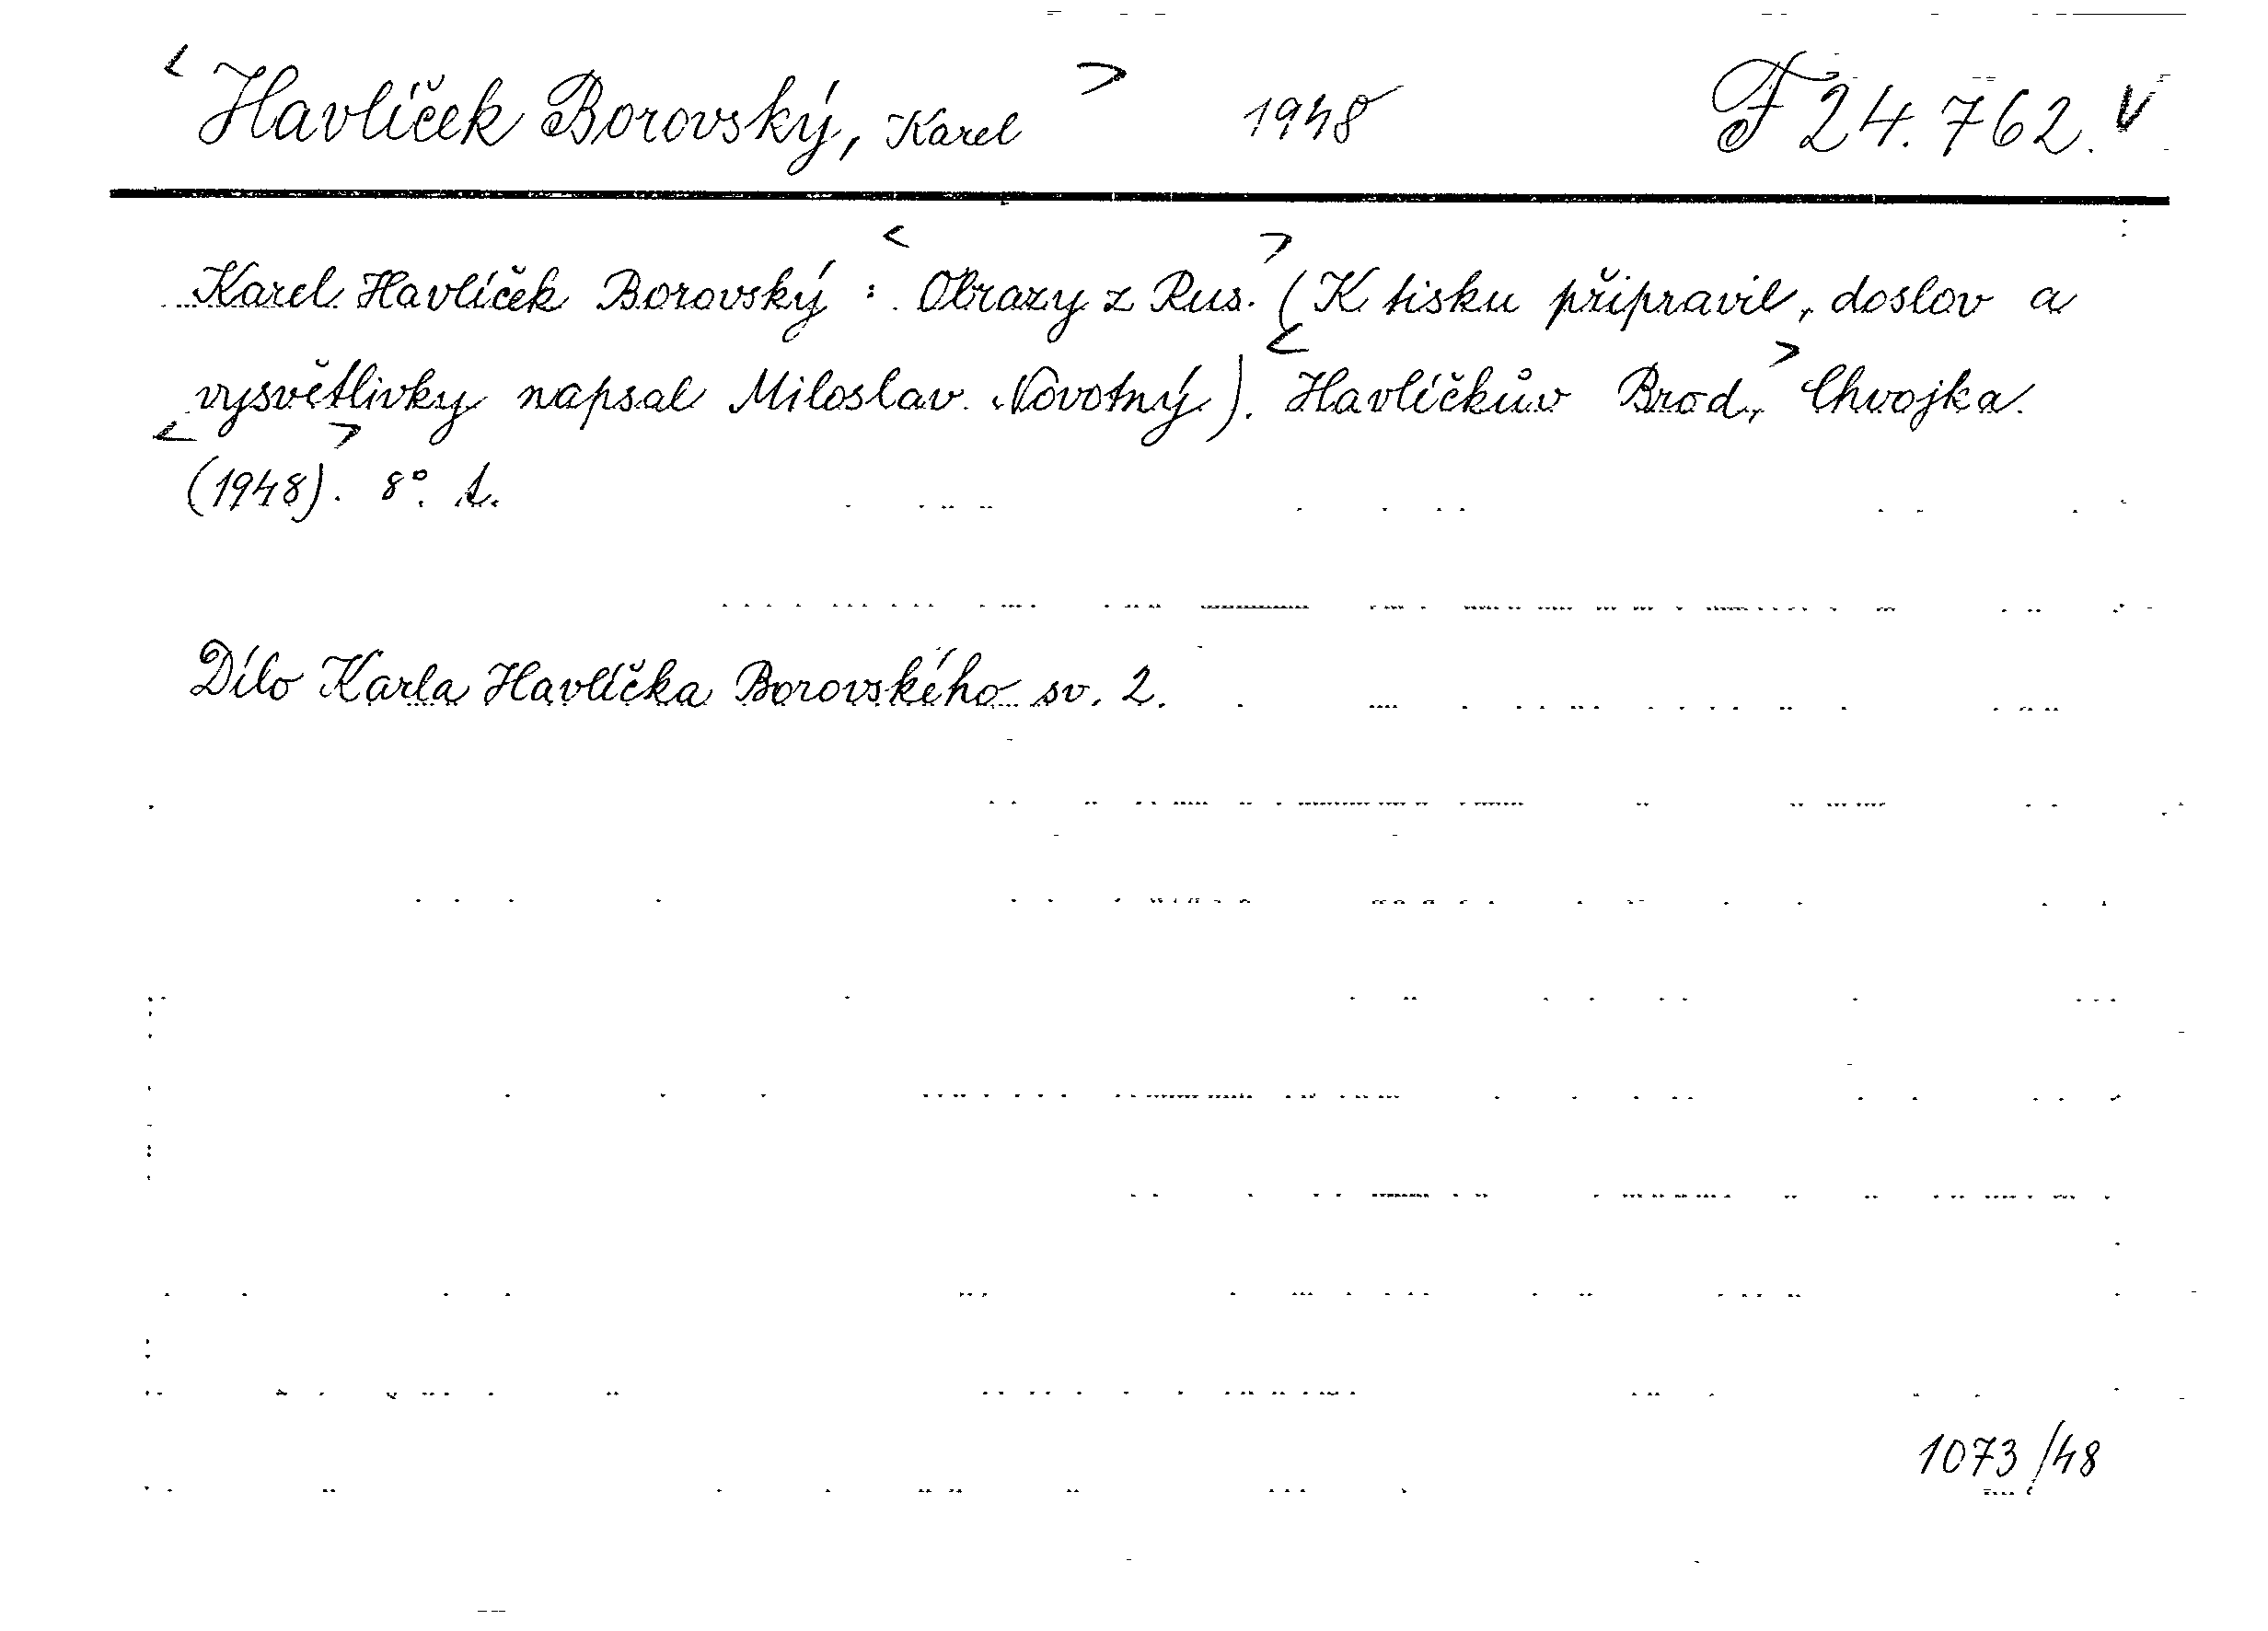 < Havlíček Borovský, Karel > 1948 F 24.762. V
Karel Havlíček Borovský : < Obrazy z Rus. > (K tisku připravil, doslov a
vysvětlivky napsal Miloslav Novotný). < Havlíčkův Brod, > Chvojka.
< (1948). > 8°.
Dílo Karla Havlíčka Borovského sv. 2.
1073/48